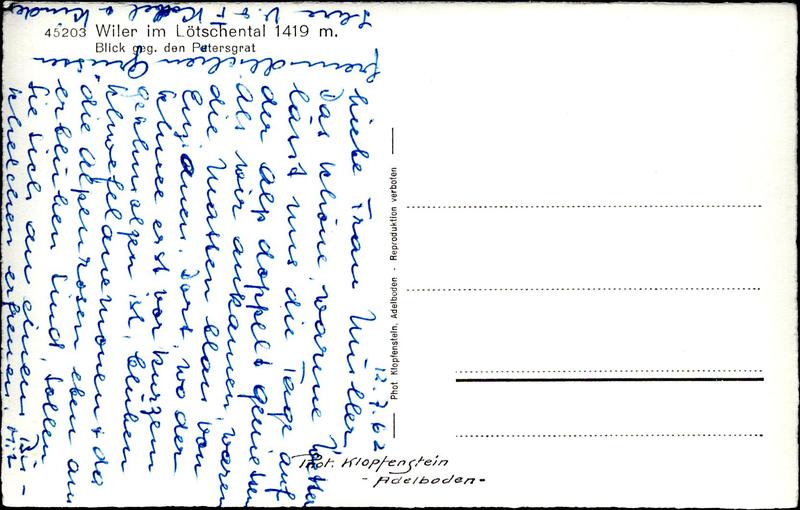 45203 Wiler im Lötschental 1419 m.
Blick geg. den Petersgrat
12.7.62
Liebe Frau Müller,
Das schöne, warme Wetter
lässt uns die Tage auf
der Alp doppelt geniessen
Als wir ankamen, waren
die Matten blau von
Enzianen. Dort, wo der
Schnee erst vor kurzem
geschmolzen ist, blühen
Schwefelanemonen & da
die Alpenrosen eben am
erblühen sind, sollen
Sie sich an einem Bü-
schelchen erfreuen. Mit
freundlichen Grüssen
Ihre V. & F. & Kinder
Phot. Klopfenstein, Adelboden - Reproduktion verboten
Phot. Klopfenstein
- Adelboden -